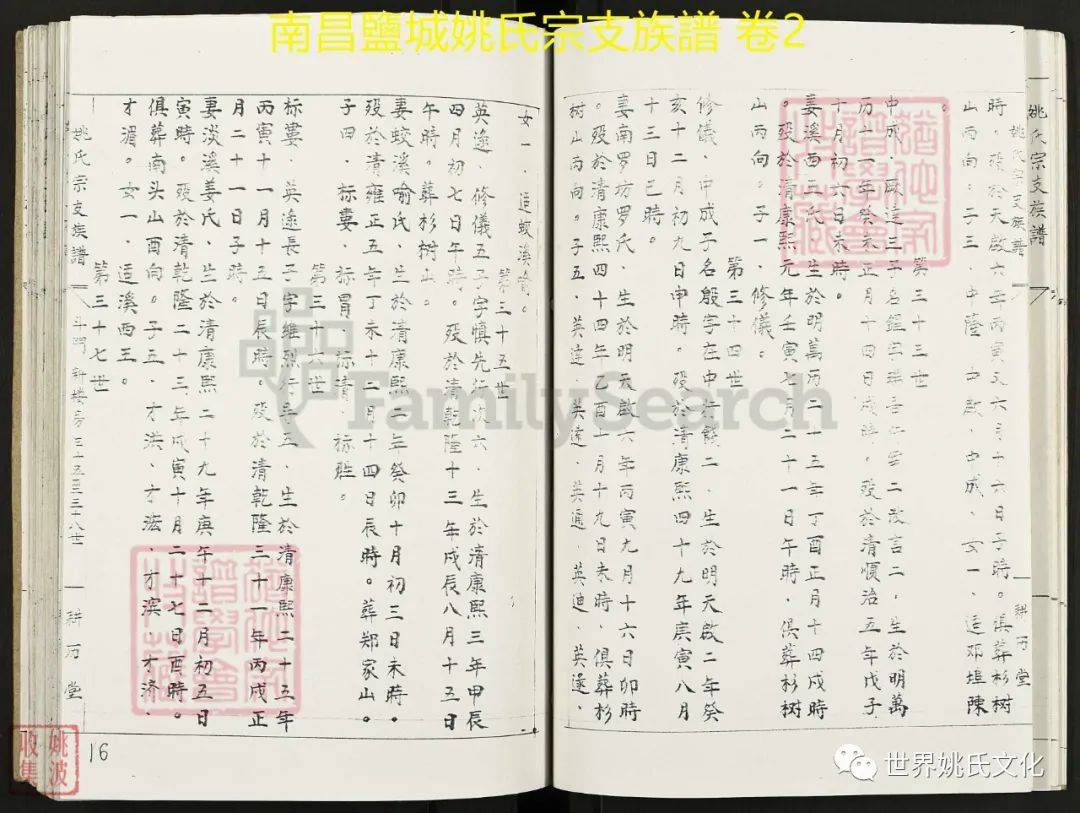 南昌鹽城姚氏宗支族譜 卷2
姚氏宗支族譜
姚氏宗支族譜
耕历堂
時。殁於天啟六年丙寅又六月十六日子時。俱葬杉树
山丙向。子三，中隆，中啟，中成，女一，适邓埠陳
第三十三世
中成，三子名 字 二改言二，生於明萬
历十一年癸未正月十四日戌時。殁於清順治五年戊子
十月初六日未時。
妻溪西王氏，生於明萬历二十三年丁酉正月十四戌時
。殁於清康熙元年壬寅七月二十一日午時，俱葬杉树
山丙向。子一，修儀。
第三十四世
修儀，中成子名殷字在中行 二，生於明天啟二年癸
亥十二月初九日申時。殁於清康熙四十九年庚寅八月
十三日巳時。
妻南罗坊罗氏，生於明天啟六年丙寅九月十六日卯時
。殁於清康熙四十四年乙酉十月十九日未時，俱葬杉
树山丙向。子五，英達，英遠，英通，英迪，英逵，
女一，适蛟溪喻。
第三十五世
英逵，修儀五子字慎先行次六，生於清康熙三年甲辰
四月初七日午時。殁於清乾隆十三年戊辰八月十五日
午時。葬杉树山。
妻蛟溪喻氏，生於清康熙二年癸卯十月初三日未時。
殁於清雍正五年丁未十二月十四日辰時。葬郑家山。
子四，标婁，标胃，标清，标 。
第三十六世
标婁，英逵長子字維烈行年五，生於清康熙二十五年
丙寅十一月十五日辰時。殁於清乾隆三十一年丙戌正
月二十一日子時。
妻淡溪姜氏，生於清康熙二十九年庚午十二月初五日
寅時。殁於清乾隆二十三年戊寅十月二十七日酉時。
俱葬南头山酉向。子五，才洪，才浤，才濱，才济，
才湄。女一，适溪西王。
第三十七世
姚氏宗支族譜 斗門 新楼房三十五至三十八世 耕历堂
16
姚波
收集
FamilySearch
世界姚氏文化